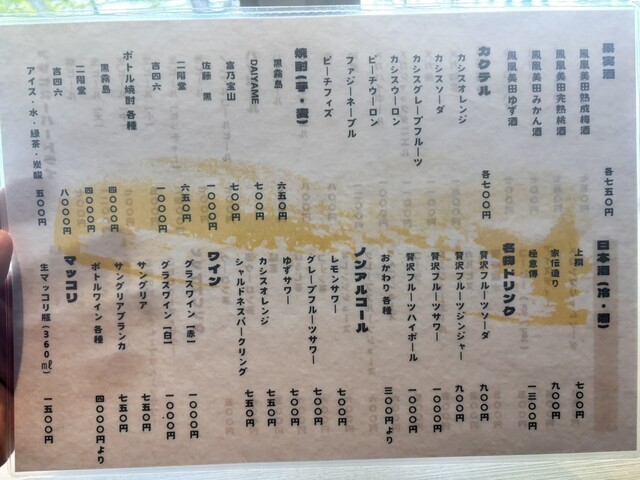 果実酒
鳳凰美田熟成梅酒
鳳凰美田完熟桃酒
鳳凰美田みかん酒
鳳凰美田ゆず酒
各七五〇円
カクテル
カシスオレンジ
カシスソーダ
カシスグレープフルーツ
カシスウーロン
ピーチウーロン
ファジーネーブル
ピーチフィズ
各七〇〇円
焼酎(芋・麦)
黒霧島 六五〇円
DAIYAME 七〇〇円
富乃宝山 七〇〇円
佐藤 黒 一〇〇〇円
二階堂 六五〇円
吉四六 一〇〇〇円
ボトル焼酎 各種
黒霧島 四〇〇〇円
二階堂 四〇〇〇円
吉四六 八〇〇〇円
アイス・水・緑茶・炭酸 五〇〇円
日本酒(冷・燗)
上撰 七〇〇円
宗伝造り 九〇〇円
一三〇〇円
名物ドリンク
贅沢フルーツソーダ 九〇〇円
贅沢フルーツジンジャー 九〇〇円
贅沢フルーツサワー 一〇〇〇円
贅沢フルーツハイボール 一〇〇〇円
おかわり各種 三〇〇円より
ノンアルコール
レモンサワー 七〇〇円
グレープフルーツサワー 七〇〇円
ゆずサワー 七〇〇円
カシスオレンジ 七五〇円
シャルドネスパークリング 七五〇円
ワイン
グラスワイン【赤】 一〇〇〇円
グラスワイン【白】 一〇〇〇円
サングリア 七五〇円
サングリアブランカ 七五〇円
ボトルワイン各種 四〇〇〇円より
マッコリ
生マッコリ瓶(360㎖) 一五〇〇円